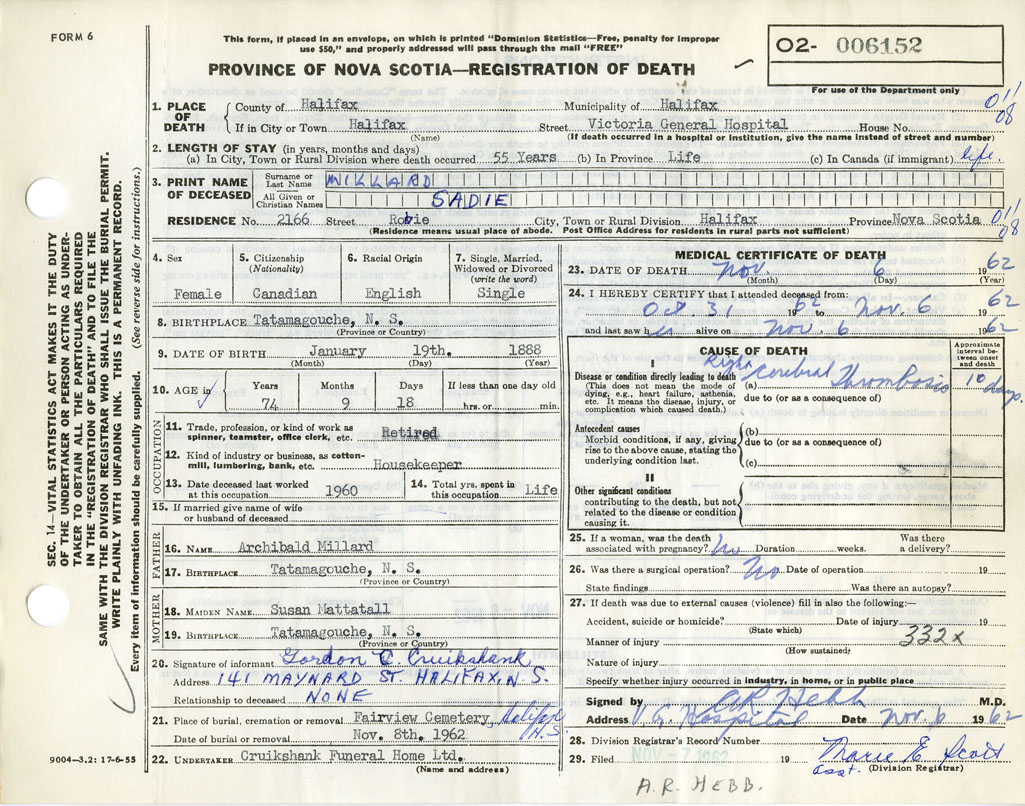 FORM 6
This form, if placed in an envelope, on which is printed "Dominion Statistics—Free, penalty for improper
use $50," and properly addressed will pass through the mail "FREE"
PROVINCE OF NOVA SCOTIA—REGISTRATION OF DEATH
02- 006152
For use of the Department only
SEC. 14—VITAL STATISTICS ACT MAKES IT THE DUTY
OF THE UNDERTAKER OR PERSON ACTING AS UNDER-
TAKER TO OBTAIN ALL THE PARTICULARS REQUIRED
IN THE "REGISTRATION OF DEATH" AND TO FILE THE
SAME WITH THE DIVISION REGISTRAR WHO SHALL ISSUE THE BURIAL PERMIT.
WRITE PLAINLY WITH UNFADING INK. THIS IS A PERMANENT RECORD.
Every item of information should be carefully supplied. (See reverse side for instructions.)
1. PLACE OF DEATH
County of Halifax Municipality of Halifax
011
08
If in City or Town Halifax Street Victoria General Hospital House No.
(Name) (If death occurred in a hospital or institution, give the name instead of street and number)
2. LENGTH OF STAY (in years, months and days)
(a) In City, Town or Rural Division where death occurred 55 Years (b) In Province Life (c) In Canada (if immigrant) life.
3. PRINT NAME OF DECEASED
Surname or Last Name MILLARD
All Given or Christian Names SADIE
RESIDENCE No. 2166 Street Robie City, Town or Rural Division Halifax Province Nova Scotia
011
08
(Residence means usual place of abode. Post Office Address for residents in rural parts not sufficient)
4. Sex
Female
5. Citizenship (Nationality)
Canadian
6. Racial Origin
English
7. Single, Married, Widowed or Divorced (write the word)
Single
8. BIRTHPLACE Tatamagouche, N. S.
(Province or Country)
9. DATE OF BIRTH January 19th. 1888
(Month) (Day) (Year)
10. AGE in
Years Months Days If less than one day old
74 9 18 hrs. or min.
OCCUPATION
11. Trade, profession, or kind of work as
spinner, teamster, office clerk, etc. Retired
12. Kind of industry or business, as cotton-
mill, lumbering, bank, etc. Housekeeper
13. Date deceased last worked
at this occupation 1960
14. Total yrs. spent in
this occupation Life
15. If married give name of wife
or husband of deceased
FATHER
16. NAME Archibald Millard
17. BIRTHPLACE Tatamagouche, N. S.
(Province or Country)
MOTHER
18. MAIDEN NAME Susan Mattatall
19. BIRTHPLACE Tatamagouche, N. S.
(Province or Country)
20. Signature of informant Gordon C. Cruikshank
Address 141 MAYNARD ST. HALIFAX, N.S.
Relationship to deceased NONE
21. Place of burial, cremation or removal Fairview Cemetery, Halifax N.S.
Date of burial or removal Nov. 8th. 1962
22. UNDERTAKER Cruikshank Funeral Home Ltd.
(Name and address)
9004—3,2: 17-6-55
MEDICAL CERTIFICATE OF DEATH
23. DATE OF DEATH Nov. 6 1962
(Month) (Day) (Year)
24. I HEREBY CERTIFY that I attended deceased from:
Oct. 31 1962 to Nov. 6 1962
and last saw her alive on Nov. 6 1962
CAUSE OF DEATH
Approximate interval between onset and death
I
Disease or condition directly leading to death
(This does not mean the mode of
dying, e.g., heart failure, asthenia,
etc. It means the disease, injury, or
complication which caused death.)
(a) Right Cerebral Thrombosis 10 days.
due to (or as a consequence of)
Antecedent causes
Morbid conditions, if any, giving
rise to the above cause, stating the
underlying condition last.
(b)
due to (or as a consequence of)
(c)
II
Other significant conditions
contributing to the death, but not
related to the disease or condition
causing it.
25. If a woman, was the death
associated with pregnancy? No Duration weeks. Was there
a delivery?
26. Was there a surgical operation? No Date of operation 19
State findings Was there an autopsy?
27. If death was due to external causes (violence) fill in also the following:—
Accident, suicide or homicide? Date of injury 19
(State which)
Manner of injury 332x
(How sustained)
Nature of injury
Specify whether injury occurred in industry, in home, or in public place
Signed by A R Hebb M.D.
Address V. G. Hospital Date Nov. 6 1962
28. Division Registrar's Record Number
29. Filed NOV -7 1962 19 Marie E. Scott
asst. (Division Registrar)
A.R. HEBB.